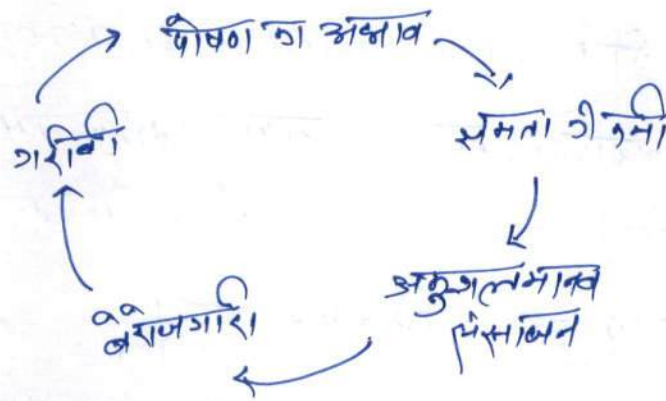 पोषण का अभाव
क्षमता की कमी
अकुशल मानव
संसाधन
बेरोजगारी
गरीबी